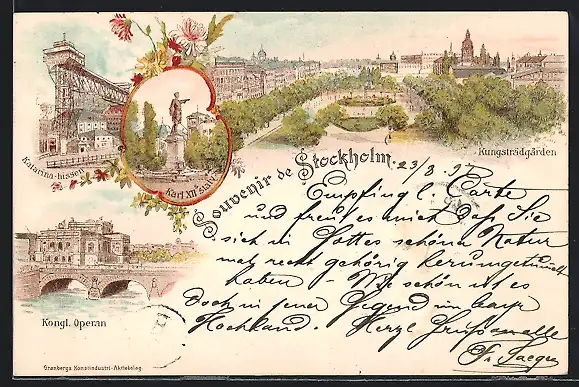 Katarina-hissen
Karl XII's staty
Kungsträdgården
Souvenir de Stockholm.
23/8 97
Empfing l. Carte
und freut es mich daß Sie
sich in Gottes schöner Natur
mal recht gehörig herumgetummelt
haben – Wie schön ist es
doch in jener Gegend im bayr
Hochland. Herzl Grüße an alle
Kongl. Operan
Granbergs Konstindustri-Aktiebolag